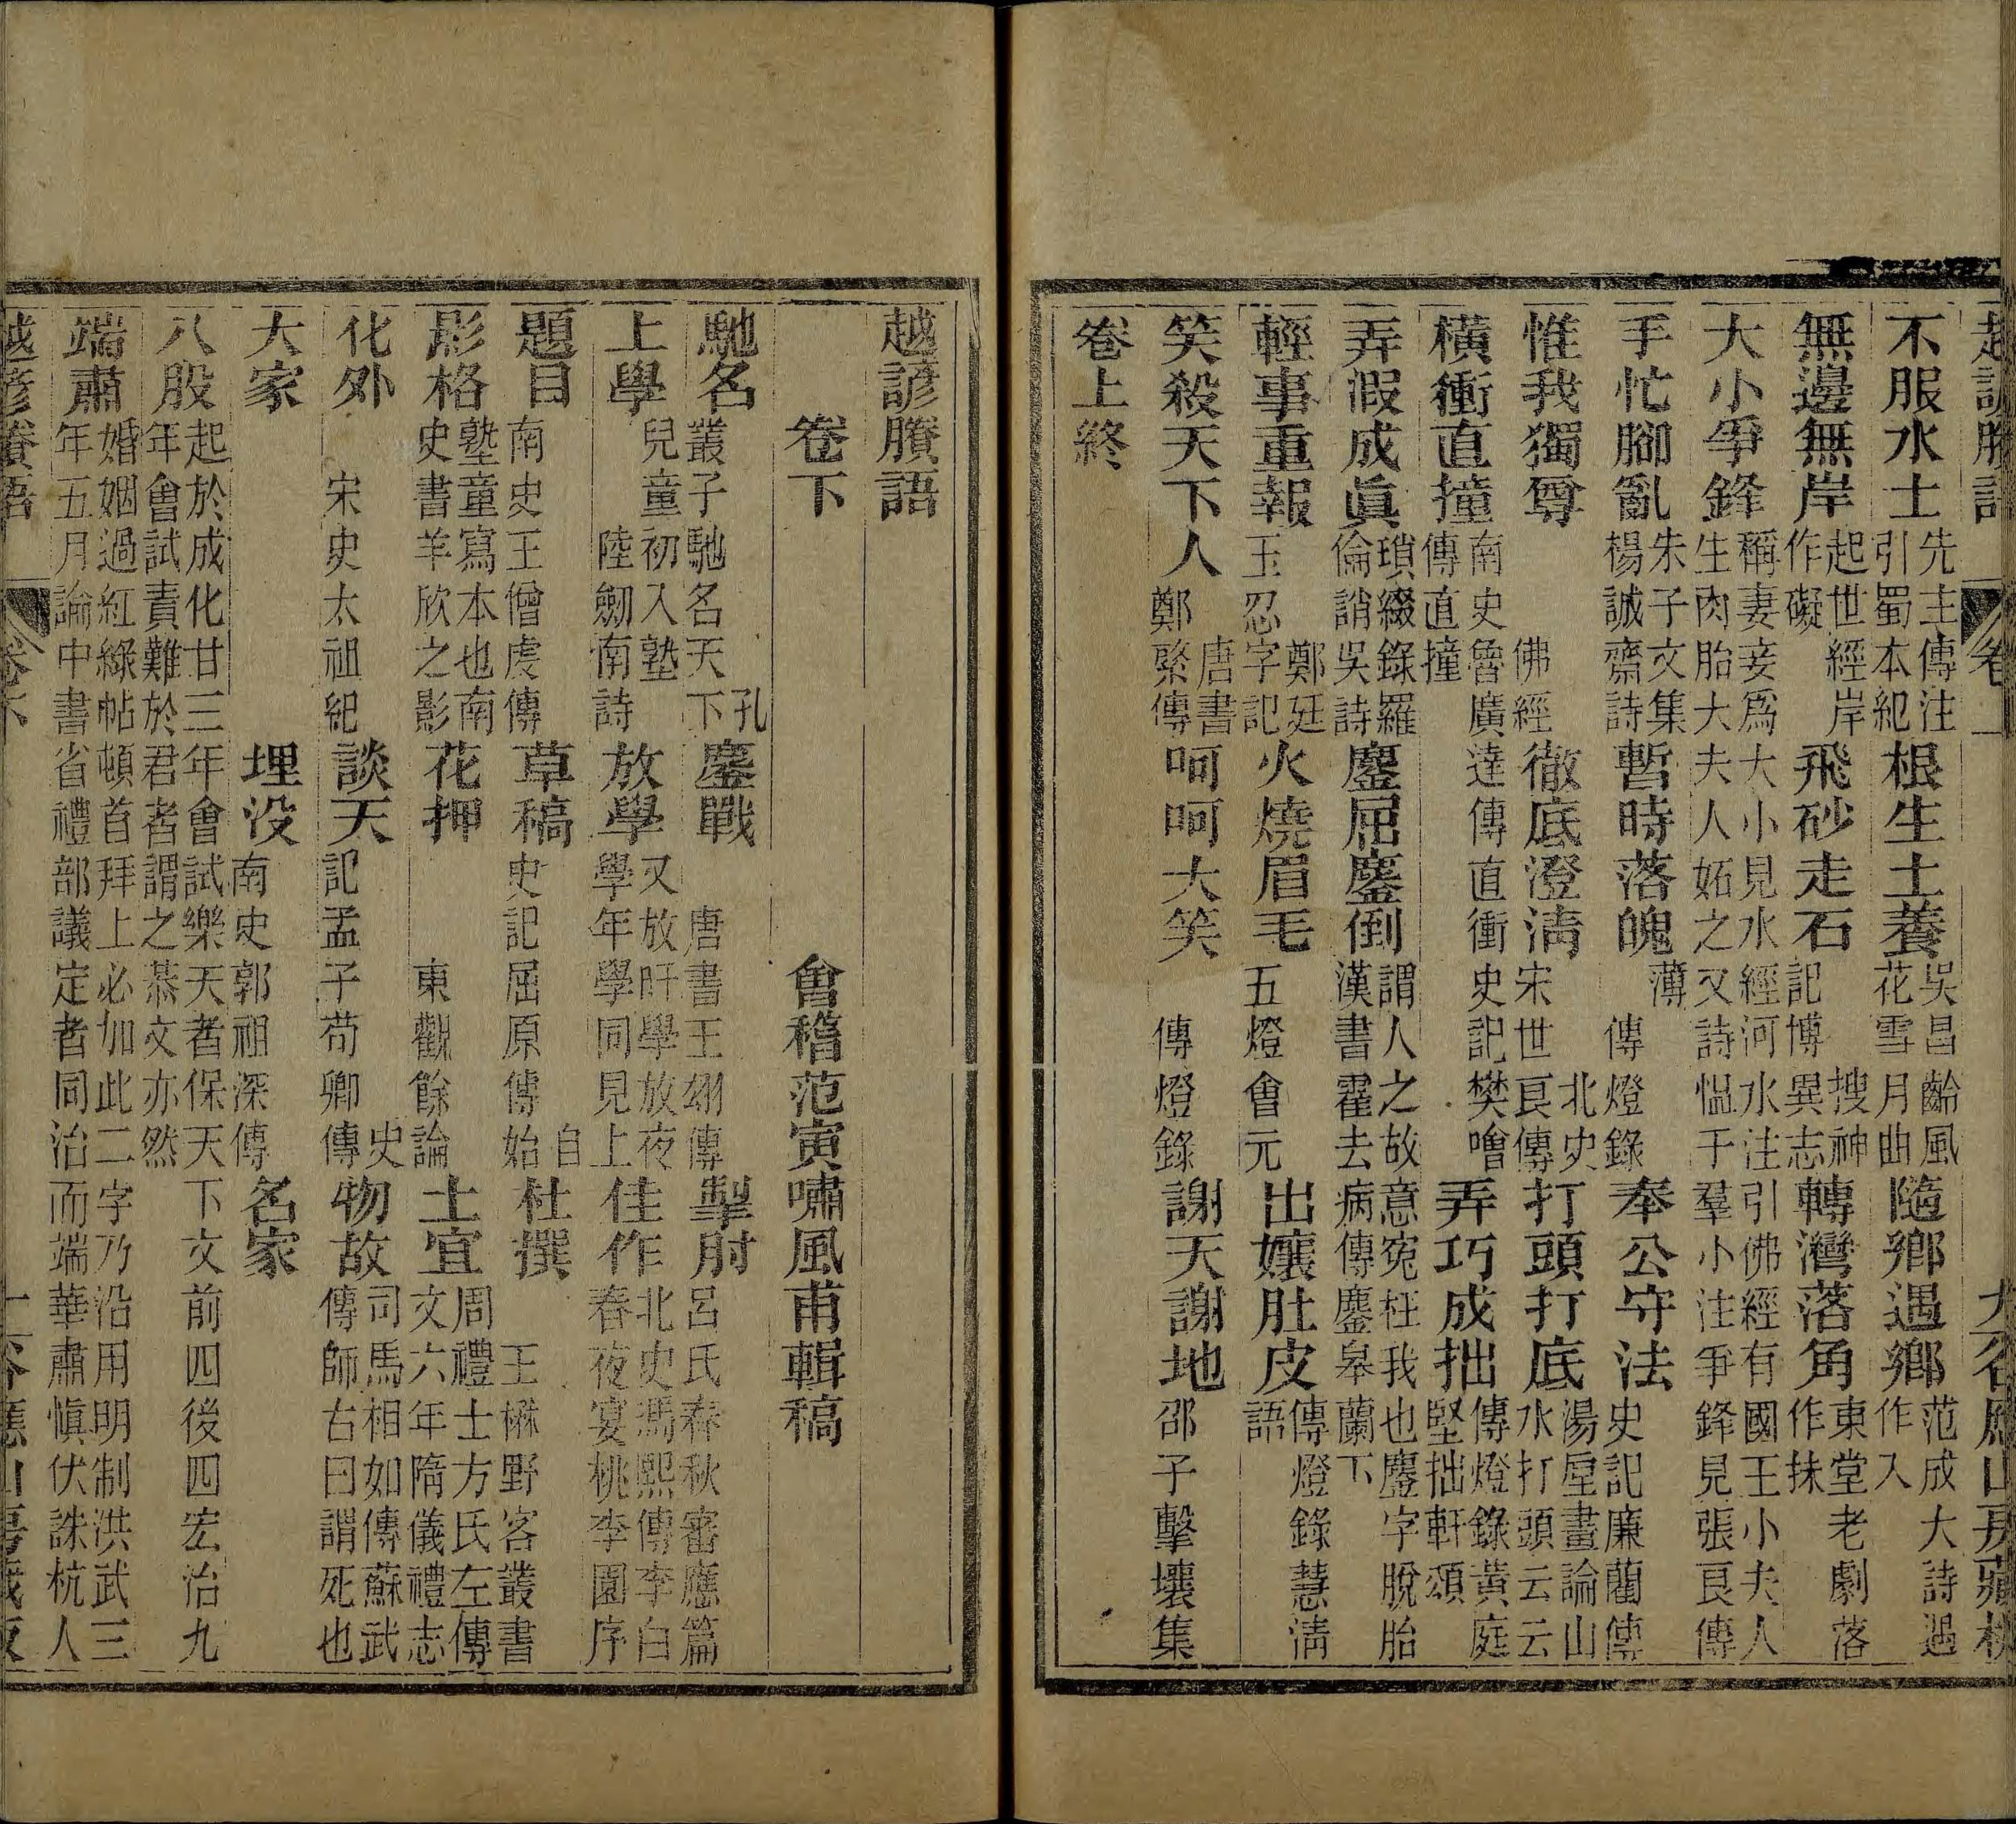 越諺賸語 卷上 穀應山房藏板
不服水土先主傳注引蜀本紀 根生土養吳昌齡風花雪月曲 隨鄉遇鄉范成大詩遇作入
無邊無岸起世經岸作礙 飛砂走石搜神記博異志 轉灣落角東堂老劇落作抹
大小爭鋒稱妻妾爲大小見水經河水注引佛經有國王小夫人生肉胎大夫人妬之又詩慍于羣小注爭鋒見張良傳
手忙腳亂朱子文集楊誠齋詩 暫時落魄薄傳燈錄 奉公守法史記廉藺傳
惟我獨尊佛經 徹底澄淸北史宋世良傳 打頭打底湯垕畫論山水打頭云云
橫衝直撞南史魯廣達傳直衝史記樊噲傳直撞 弄巧成拙傳燈錄黃庭堅拙軒頌
弄假成眞瑣綴錄羅倫誚吳詩 鏖屈鏖倒謂人之故意寃枉我也鏖字脫胎漢書霍去病傳鏖皋蘭下
輕事重報鄭廷玉忍字記 火燒眉毛五燈會元 出孃肚皮傳燈錄慧淸語
笑殺天下人唐書鄭綮傳 呵呵大笑傳燈錄 謝天謝地邵子擊壤集
卷上終
越諺賸語
卷下 會稽范寅嘯風甫輯稿
馳名孔叢子馳名天下 鏖戰唐書王翃傳 掣肘呂氏春秋審應篇
上學兒童初入塾陸劒南詩 放學又放旰學放夜學年學同見上 佳作北史馮熙傳李白春夜宴桃李園序
題目南史王僧虔傳 草稿史記屈原傳始自 杜撰王楙野客叢書
影格塾童寫本也南史書羊欣之影 花押東觀餘論 土宜周禮土方氏左傳文六年隋儀禮志
化外宋史太祖紀 談天史記孟子荀卿傳 物故司馬相如傳蘇武傳師古曰謂死也
大家 埋没南史郭祖深傳 名家
八股起於成化廿三年會試樂天者保天下文前四後四宏治九年會試責難於君者謂之恭文亦然
端肅婚姻過紅綠帖頓首拜上必加此二字乃沿用明制洪武三年五月論中書省禮部議定者同治而端華肅愼伏誅杭人
越諺賸語 卷下 一 穀應山房藏板